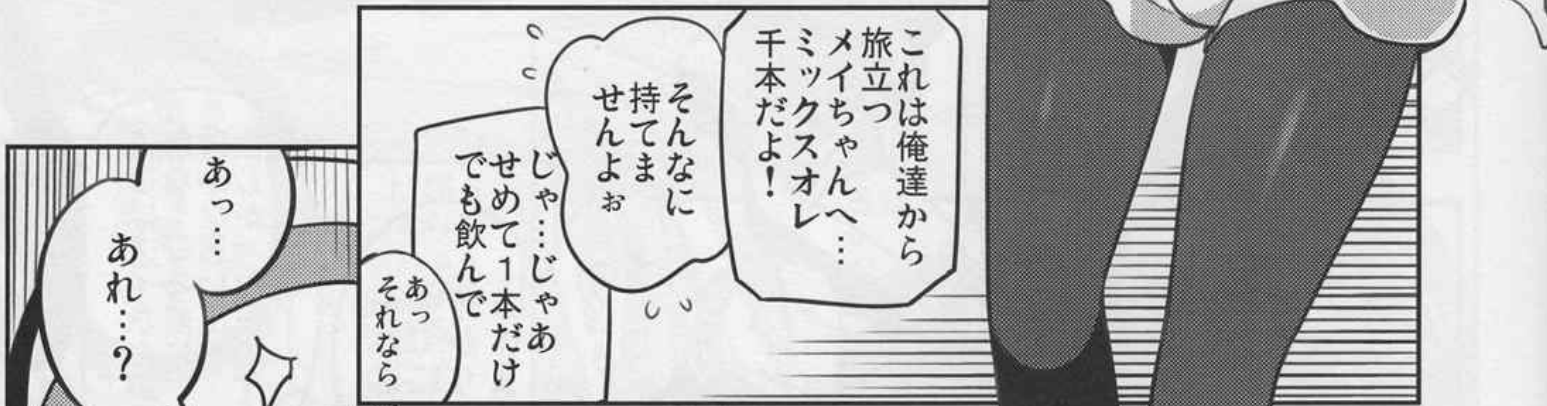 これは俺達から
旅立つ
メイちゃんへ…
ミックスオレ
千本だよ！
そんなに
持てま
せんよぉ
じゃ…じゃあ
せめて1本だけ
でも飲んで
あっ
それなら
あっ…
あれ…？